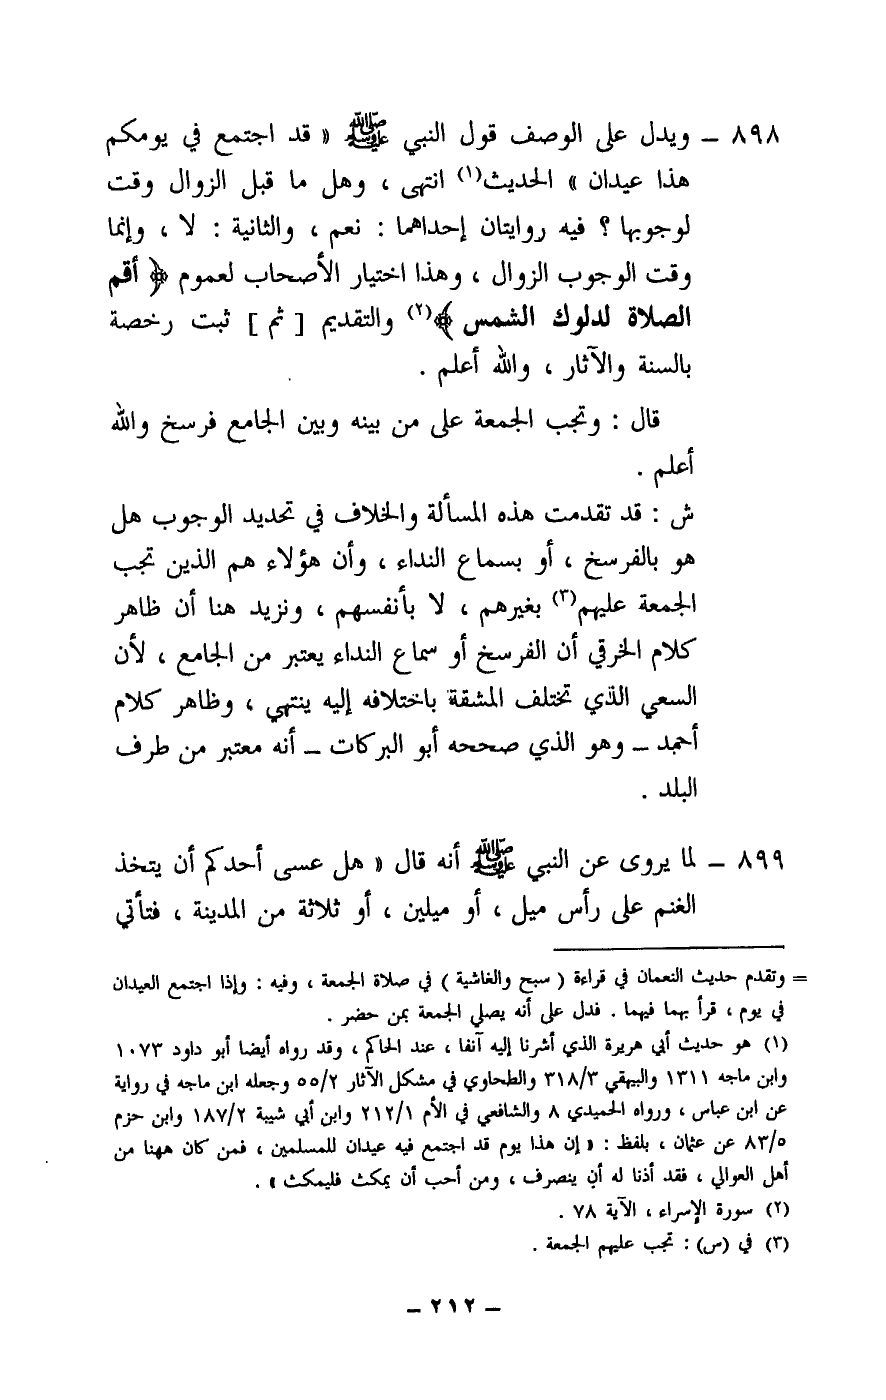 ٨٩٨ ــ ويدل على الوصف قول النبي ﷺ « قد اجتمع في يومكم
هذا عيدان » الحديث(١) انتهى ، وهل ما قبل الزوال وقت
لوجوبها ؟ فيه روايتان إحداهما : نعم ، والثانية : لا ، وإنما
وقت الوجوب الزوال ، وهذا اختيار الأصحاب لعموم ﴿ أقم
الصلاة لدلوك الشمس ﴾(٢) والتقديم [ ثم ] ثبت رخصة
بالسنة والآثار ، والله أعلم .
قال : وتجب الجمعة على من بينه وبين الجامع فرسخ والله
أعلم .
ش : قد تقدمت هذه المسألة والخلاف في تحديد الوجوب هل
هو بالفرسخ ، أو بسماع النداء ، وأن هؤلاء هم الذين تجب
الجمعة عليهم(٣) بغيرهم ، لا بأنفسهم ، ونزيد هنا أن ظاهر
كلام الخرقي أن الفرسخ أو سماع النداء يعتبر من الجامع ، لأن
السعي الذي تختلف المشقة باختلافه إليه ينتهي ، وظاهر كلام
أحمد ــ وهو الذي صححه أبو البركات ــ أنه معتبر من طرف
البلد .
٨٩٩ ــ لما يروى عن النبي ﷺ أنه قال « هل عسى أحدكم أن يتخذ
الغنم على رأس ميل ، أو ميلين ، أو ثلاثة من المدينة ، فتأتي
= وتقدم حديث النعمان في قراءة ( سبح والغاشية ) في صلاة الجمعة ، وفيه : وإذا اجتمع العيدان
في يوم ، قرأ بهما فيهما . فدل على أنه يصلي الجمعة بمن حضر .
(١) هو حديث أبي هريرة الذي أشرنا إليه آنفا ، عند الحاكم ، وقد رواه أيضا أبو داود ١٠٧٣
وابن ماجه ١٣١١ والبيهقي ٣١٨/٣ والطحاوي في مشكل الآثار ٥٥/٢ وجعله ابن ماجه في رواية
عن ابن عباس ، ورواه الحميدي ٨ والشافعي في الأم ٢١٢/١ وابن أبي شيبة ١٨٧/٢ وابن حزم
٨٣/٥ عن عثمان ، بلفظ : « إن هذا يوم قد اجتمع فيه عيدان للمسلمين ، فمن كان ههنا من
أهل العوالي ، فقد أذنا له أن ينصرف ، ومن أحب أن يمكث فليمكث » .
(٢) سورة الإسراء ، الآية ٧٨ .
(٣) في (س) : تجب عليهم الجمعة .
ــ ٢١٢ ــ